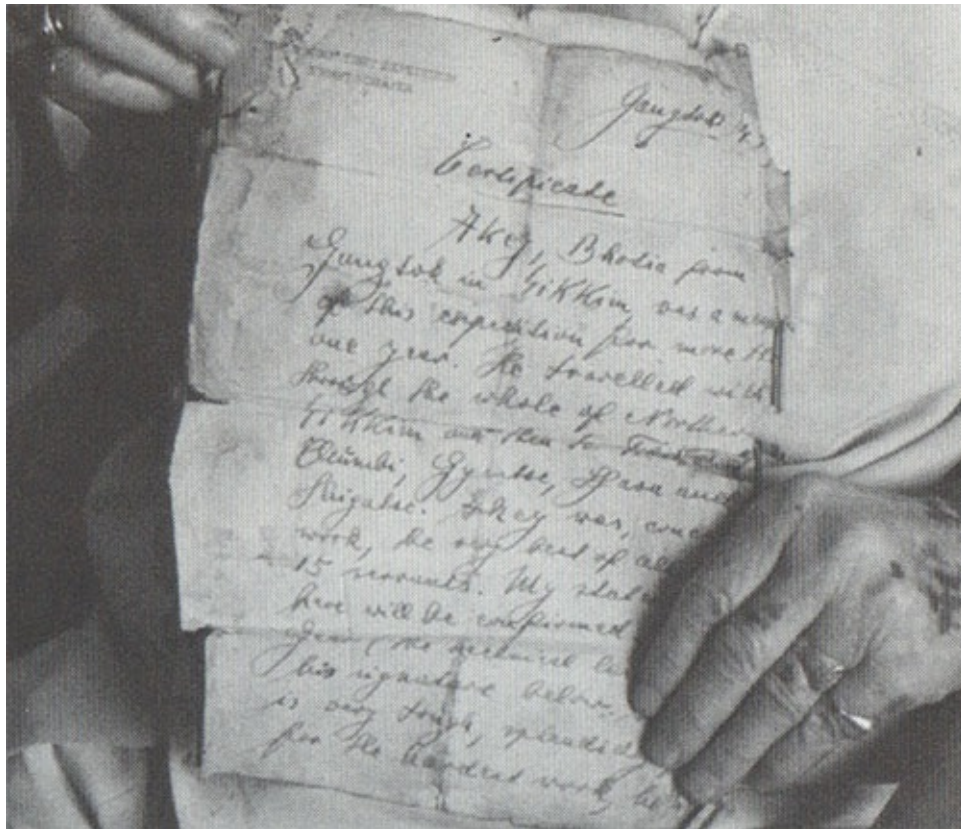 Gangtok
Certificate
Akey, Bhotia from
Gangtok in Sikkim, was a mem
of this expedition for more th
one year. He travelled with
through the whole of Northern
Sikkim and then to
Chumbi, Gyantse, Lhasa and
Shigatse. Akey was, conc
work, the very best of al
15 servants. My stat
here will be confirmed
Geer (the technical le
his signature below.
is very tough, splendid
for the hardest work, he